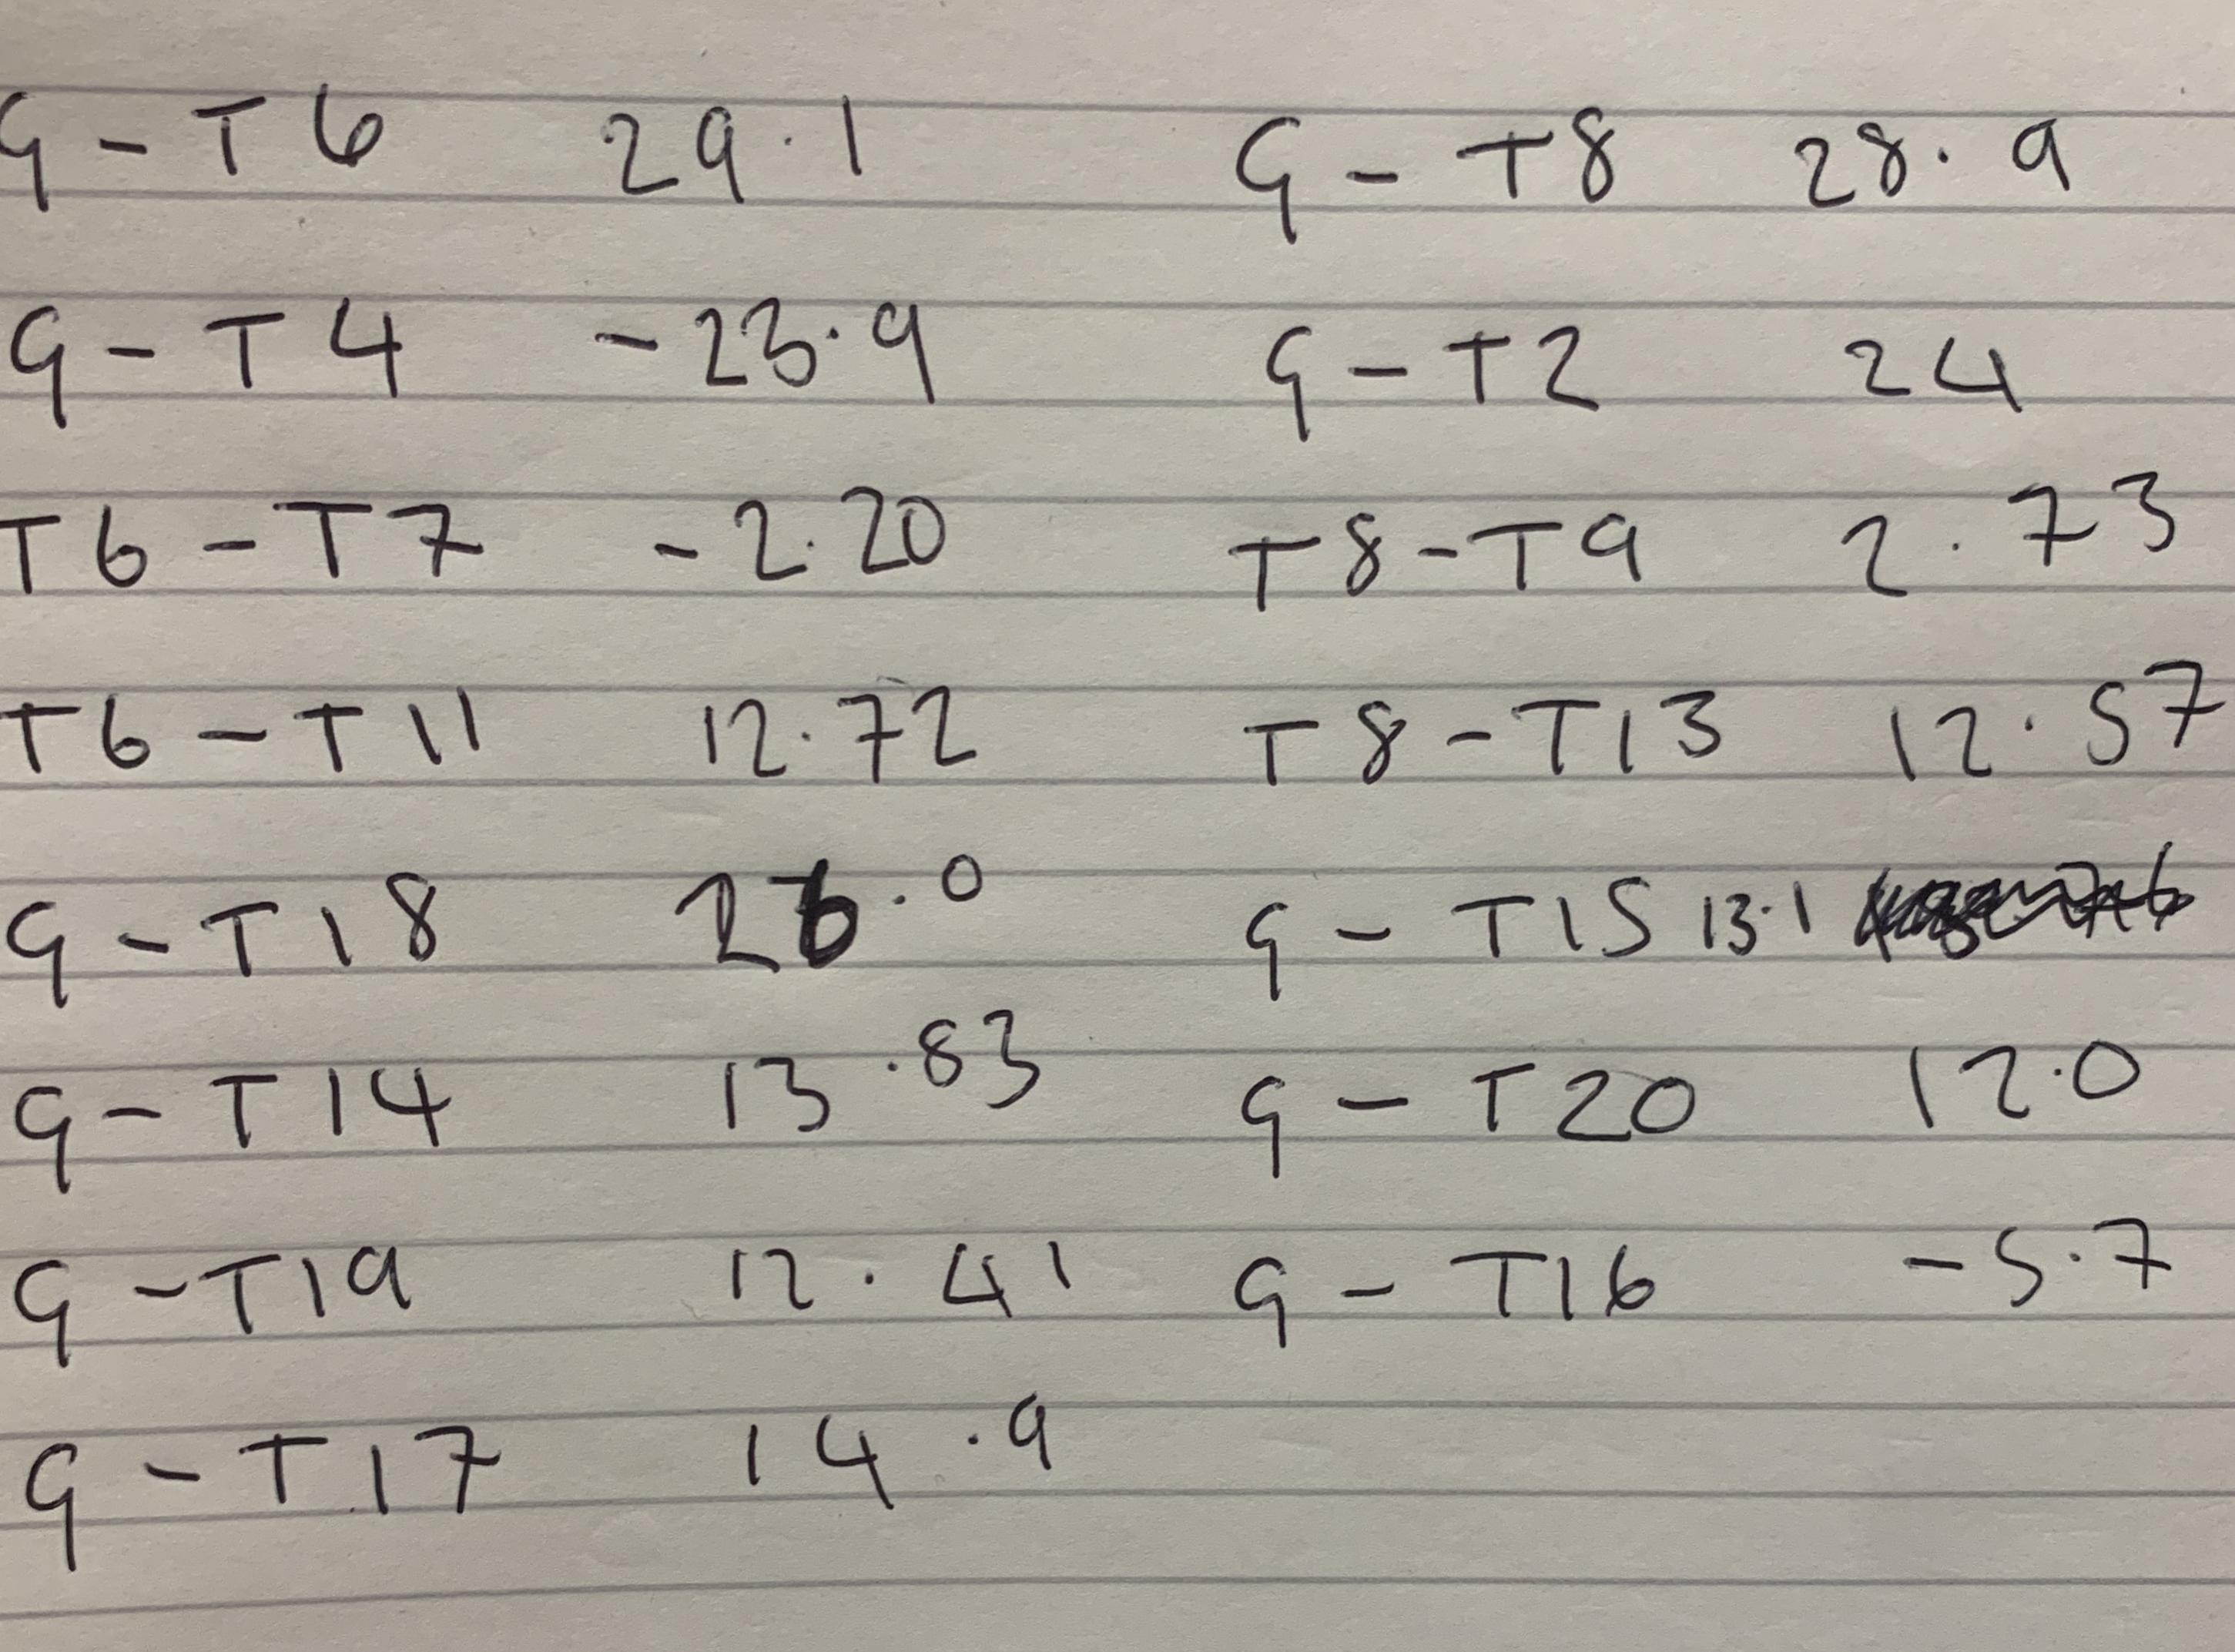 G - T6 29.1 G - T8 28.9
G - T4 -23.9 G - T2 24
T6 - T7 -2.20 T8 - T9 2.73
T6 - T11 12.72 T8 - T13 12.57
G - T18 26.0 G - T15 13.1
G - T14 13.83 G - T20 12.0
G - T19 12.41 G - T16 -5.7
G - T17 14.9